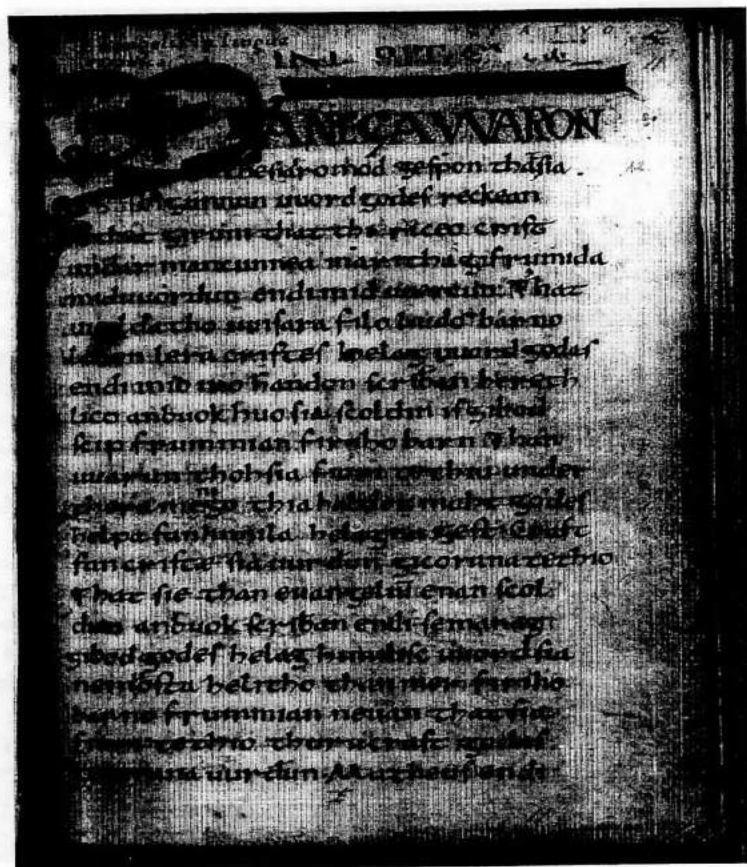 MANEGA VVARON
the sia iro mod gespon that sia
bigunnun uuord godes reckean
that giruni that thie riceo crist
undar mancunnea maritha gifrumida
mid uuordun endi mid uuercun That
uuolda tho uuisara filo liudo barno
lobon lera cristes helag uuord godas
endi mid iro handon scriban bereth
lico an buok huo sia scoldin is gibod
scip frummian firiho barn Than
uuarun thoh sia fiori te thiu under
thera menigo thia habdon maht godes
helpa fan himila helagna gest craft
fan criste sia uurdun gicorana te thio
that sie than euangeliū enan scol
dun an buok scriban endi so manag
gibod godes helag himilisc uuord sia
ne muosta helitho than mer firiho
barno frummian neuan that sia
fiori te thio thuru craft godas
gecorana uurdun Matheus endi